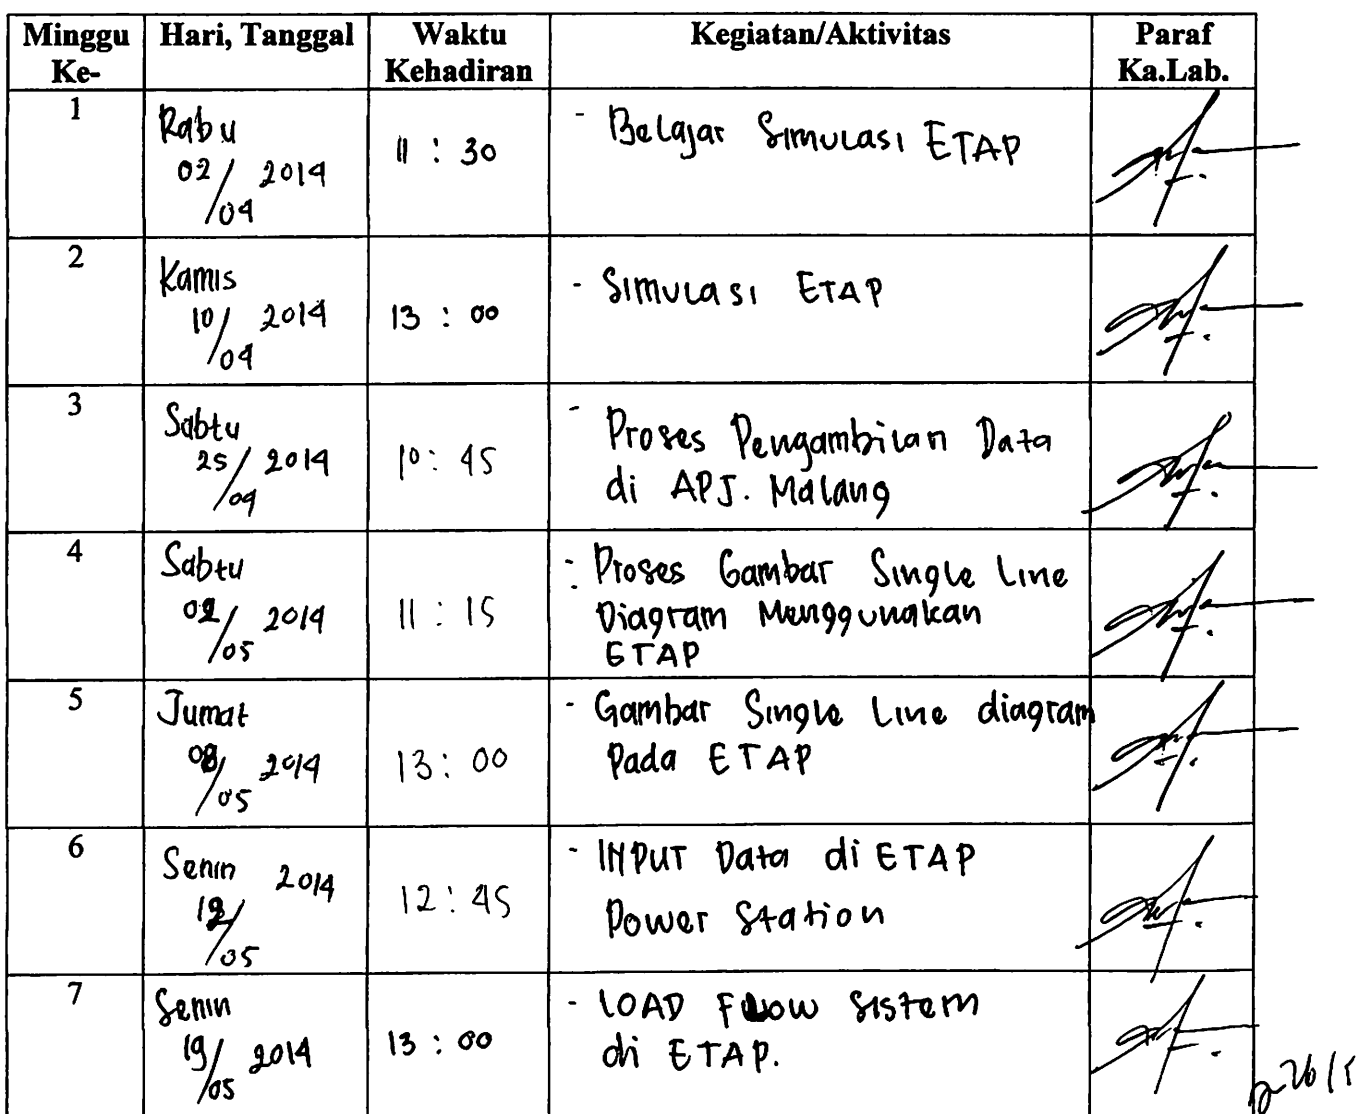 Minggu Ke- Hari, Tanggal Waktu Kehadiran Kegiatan/Aktivitas Paraf Ka.Lab.
1
Rabu
02/04 2014
11 : 30
- Belajar Simulasi ETAP
2
Kamis
10/04 2014
13 : 00
- Simulasi ETAP
3
Sabtu
25/04 2014
10 : 45
- Proses Pengambilan Data
di APJ. Malang
4
Sabtu
02/05 2014
11 : 15
- Proses Gambar Single Line
Diagram Menggunakan
ETAP
5
Jumat
/05 2014
13 : 00
- Gambar Single Line diagram
Pada ETAP
6
Senin 2014
12/05
12 : 45
- INPUT Data di ETAP
Power Station
7
Senin
19/05 2014
13 : 00
- LOAD Flow Sistem
di ETAP.